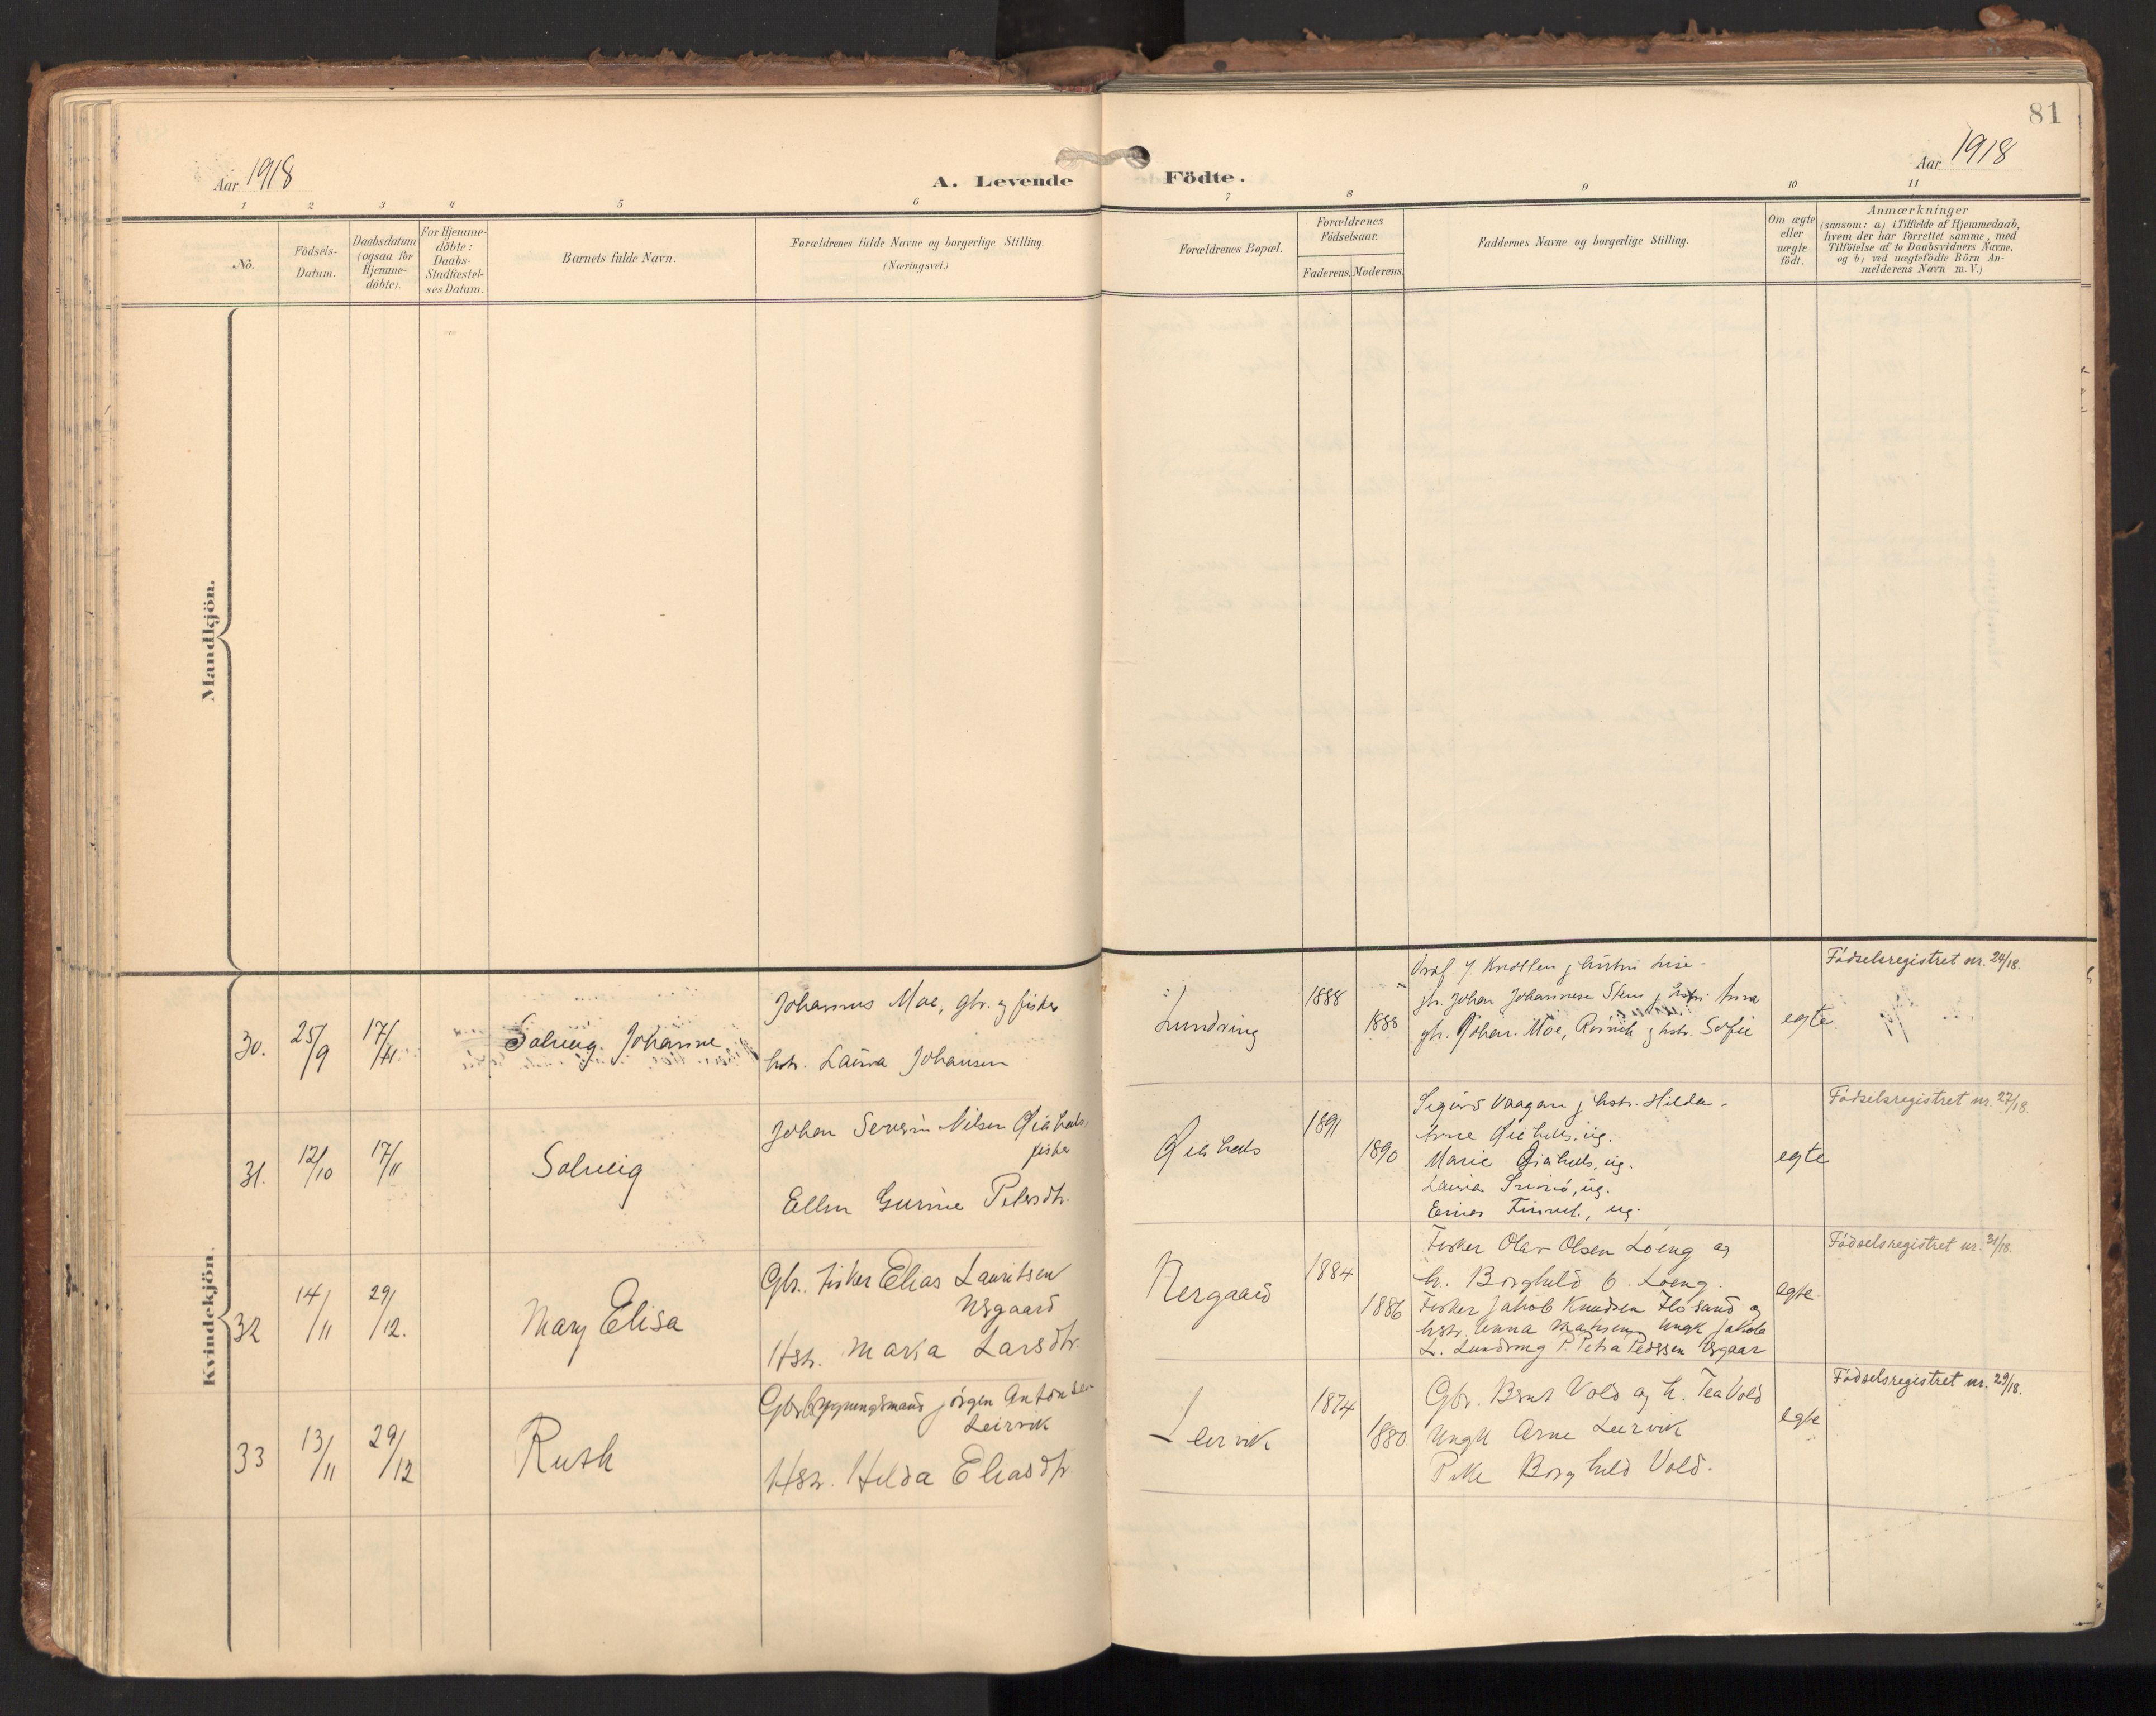 81
Aar 1918
A. Levende Födte.
Aar 1918
1 2 3 4 5 6 7 8 9 10 11
No.
Födsels-
Datum.
Daabsdatum
(ogsaa for
Hjemme-
döbte).
For Hjemme-
döbte:
Daabs-
Stadfæstel-
ses Datum.
Barnets fulde Navn.
Forældrenes fulde Navne og borgerlige Stilling.
(Næringsvei.)
Forældrenes Bopæl.
Forældrenes
Födselsaar.
Faderens. Moderens.
Faddernes Navne og borgerlige Stilling.
Om ægte
eller
uægte
födt.
Anmærkninger
(saasom: a) i Tilfælde af Hjemmedaab,
hvem der har forrettet samme, med
Tilföielse af to Daabsvidners Navne,
og b) ved uægtefödte Börn An-
melderens Navn m. V.)
Mandkjön.
Kvindekjön.
30. 25/9 17/11 Solveig Johanne
Johannes Moe, gbr. og fisker
hstr. Laura Johansen
Lundring 1888 1888
J. Knotten
gbr. Johan Johannesen
gbr. Johan Moe, hstr. Sofie
egte
Födselsregistret nr. 24/18.
31. 12/10 17/11 Solveig
Johan Severin Nilsen
fisker
Ellen Gurine Petersdtr.
1891 1890
Sigurd Vaagan hstr. Hilda.
ug.
Marie ug.
Laura ug.
ug.
egte
Födselsregistret nr. 27/18.
32 14/11 29/12. Mary Elisa
Gbr. fisker Elias Lauritsen
Nergaard
Hstr. Maria Larsdtr.
Nergaard 1884 1886
Fisker Olav Olsen Loeng og
h. Borghild O. Loeng.
Fisker Jakob Knudsen Flosand og
hstr. Anna Ungk Jakob
L. Lundring P. Petra Pedersen
egte.
Födselsregistret nr. 31/18.
33 13/11 29/12 Ruth
Gbr. bygningsmand Jörgen Antonsen
Leirvik
Hstr. Hilda Eliasdtr.
Leirvik 1874 1880
Gbr. Bernt Vold og h. Tea Vold
Ungk Arne Leirvik
Pike Borghild Vold.
egte
Födselsregistret nr. 29/18.